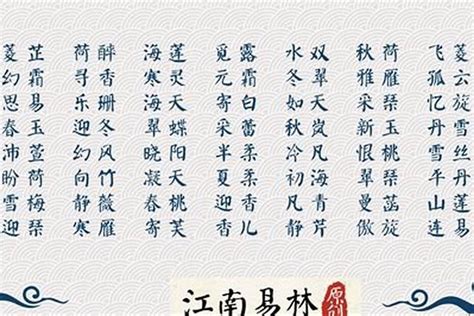 菱芷 荷醉 海莲 觅露 水双 秋荷 飞菱
幻霜 寻香 寒灵 元霜 冬翠 雅雁 孤云
思易 乐珊 海天 寄白 如天 采琹 忆旋
春玉 迎冬 翠蝶 采蕾 秋岚 新玉 丹雪
沛萱 幻风 晓阳 半柔 冷凡 恨桃 雪丝
盼荷 向竹 凝天 夏柔 初海 翠琹 平丹
雪梅 静 春桃 迎香 青 曼 山
迎琹 寒雁 寄芙 香儿 静芹 傲旋 连易
江南易林
原创